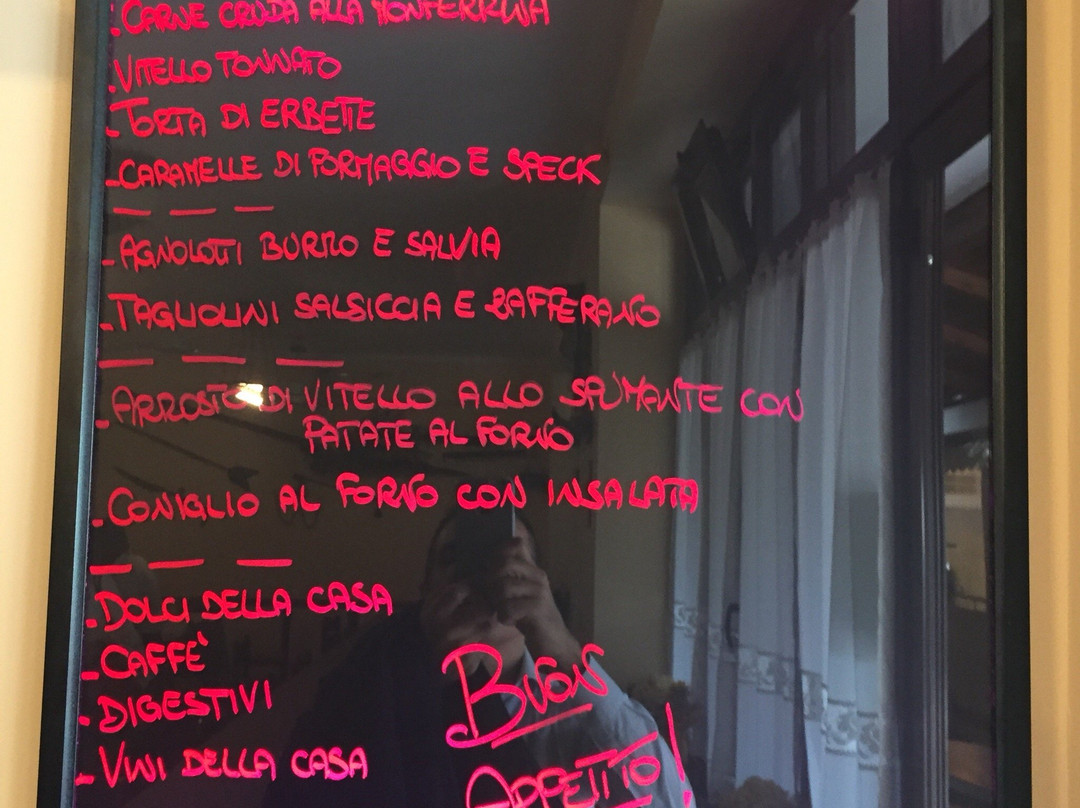 . CARNE CRUDA ALLA MONFERRINA
. VITELLO TONNATO
- TORTA DI ERBETTE
- CARAMELLE DI FORMAGGIO E SPECK
— — —
- AGNOLOTTI BURRO E SALVIA
- TAGLIOLINI SALSICCIA E ZAFFERANO
— — —
- ARROSTO DI VITELLO ALLO SPUMANTE CON
PATATE AL FORNO
- CONIGLIO AL FORNO CON INSALATA
— — —
- DOLCI DELLA CASA
- CAFFE'
- DIGESTIVI
- VINI DELLA CASA
BUON
APPETITO!